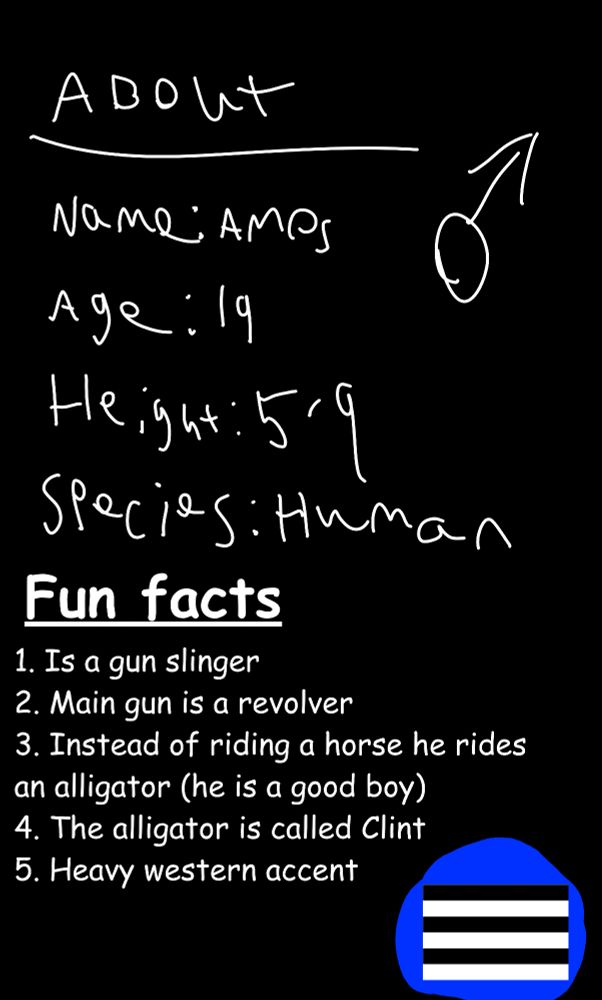 ABOUt
Name: AMPs
Age: 19
Height: 5'9
Species: Human
Fun facts
1. Is a gun slinger
2. Main gun is a revolver
3. Instead of riding a horse he rides
an alligator (he is a good boy)
4. The alligator is called Clint
5. Heavy western accent